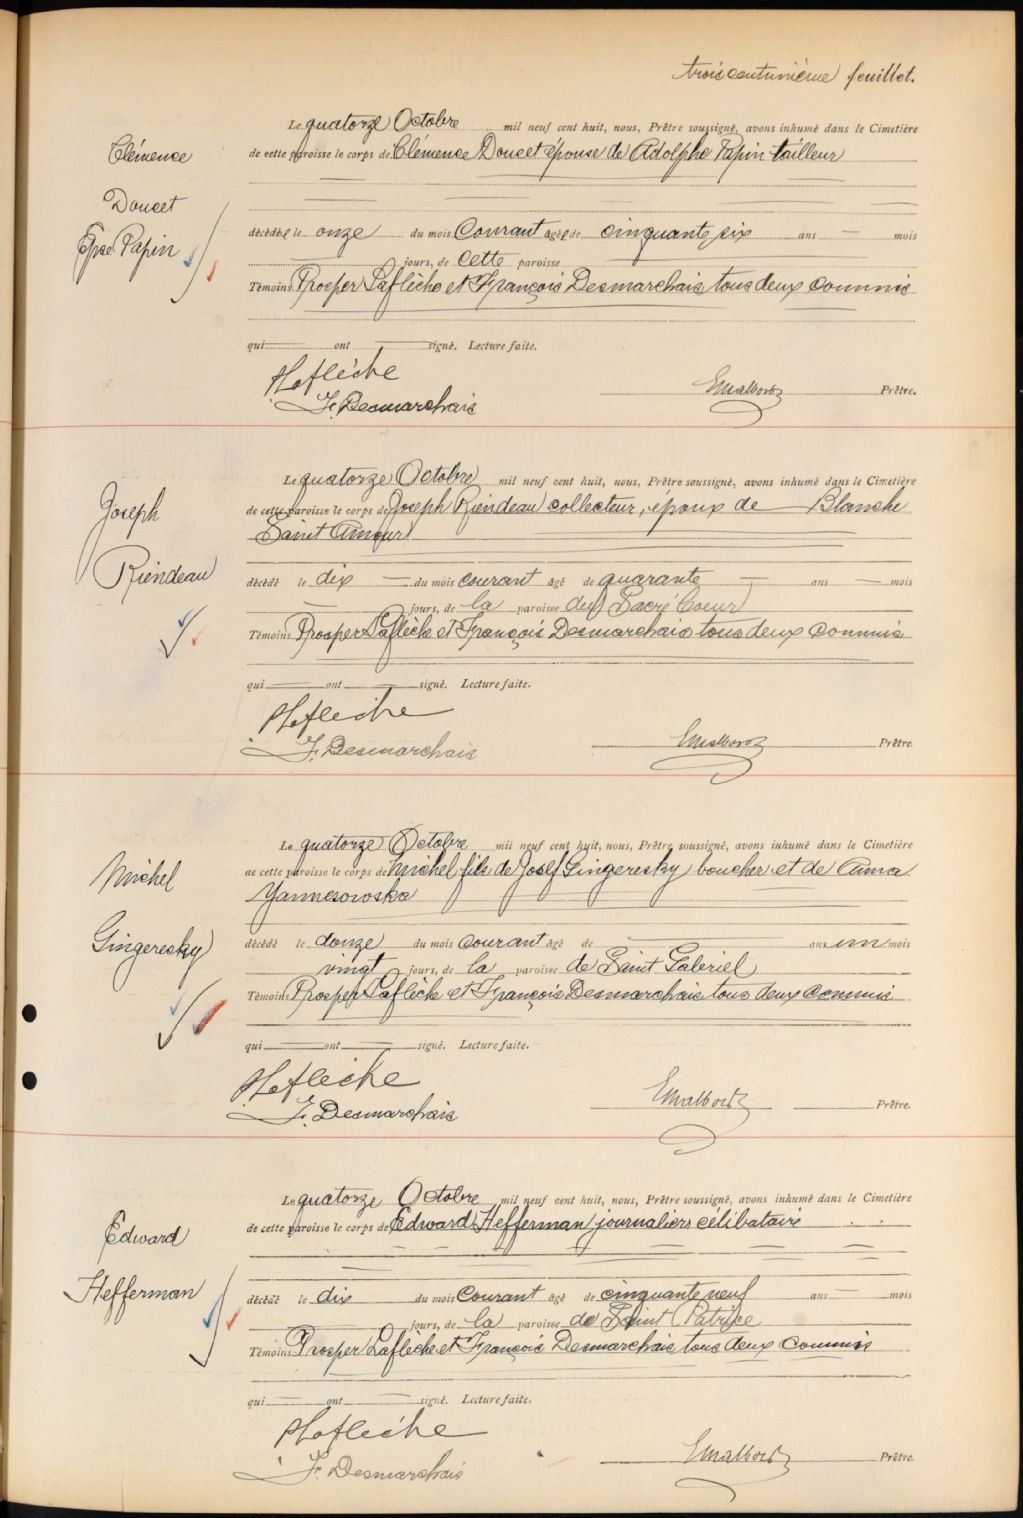 trois centunième feuillet.
Clémence
Doucet
Épse Papin
Le quatorze Octobre mil neuf cent huit, nous, Prêtre soussigné, avons inhumé dans le Cimetière
de cette paroisse le corps de Clémence Doucet épouse de Adolphe Papin tailleur
décédée le onze du mois Courant agée de cinquante six ans — mois
jours, de cette paroisse
Témoins Prosper Laflèche et François Desmarchais tous deux commis
qui ont signé. Lecture faite.
PLaflèche
F. Desmarchais
Prêtre.
Joseph
Riendeau
Le quatorze Octobre mil neuf cent huit, nous, Prêtre soussigné, avons inhumé dans le Cimetière
de cette paroisse le corps de Joseph Riendeau collecteur, époux de Blanche
Saint Amour
décédé le dix — du mois courant âgé de quarante — ans — mois
jours, de la paroisse du Sacré Coeur
Témoins Prosper Laflèche et François Desmarchais tous deux commis
qui ont signé. Lecture faite.
PLaflèche
F. Desmarchais
Prêtre
Michel
Gingeresky
Le quatorze Octobre mil neuf cent huit, nous, Prêtre soussigné, avons inhumé dans le Cimetière
de cette paroisse le corps de Michel fils de Josef Gingeresky boucher et de Anna
Yannesowska
décédé le douze du mois courant âgé de ans un mois
vingt jours, de la paroisse de Saint Gabriel
Témoins Prosper Laflèche et François Desmarchais tous deux commis
qui ont signé. Lecture faite.
PLaflèche
F. Desmarchais
Prêtre.
Edward
Hefferman
Le quatorze Octobre mil neuf cent huit, nous, Prêtre soussigné, avons inhumé dans le Cimetière
de cette paroisse le corps de Edward Hefferman journalier célibataire
décédé le dix du mois Courant âgé de cinquante neuf ans — mois
jours, de la paroisse de Saint Patrice
Témoins Prosper Laflèche et François Desmarchais tous deux commis
qui ont signé. Lecture faite.
PLaflèche
F. Desmarchais
Prêtre